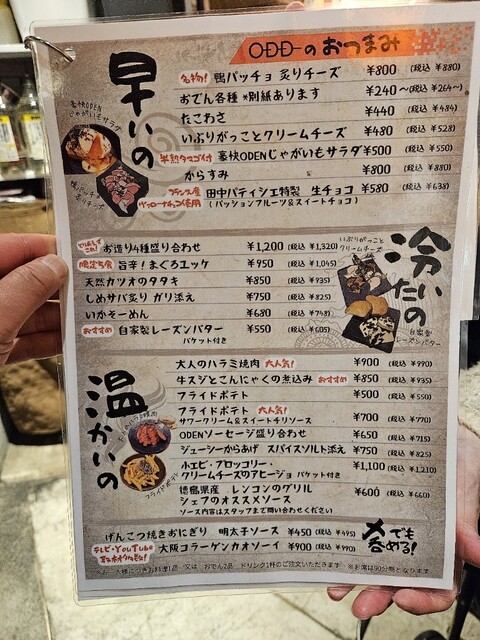 ODDのおつまみ
早いの
名物! 鴨パッチョ 炙りチーズ ¥800 (税込 ¥880)
おでん各種 *別紙あります ¥240〜(税込 ¥264〜)
たこわさ ¥440 (税込 ¥484)
いぶりがっことクリームチーズ ¥480 (税込 ¥528)
半熟タマゴ付 豪快ODENじゃがいもサラダ ¥500 (税込 ¥550)
からすみ ¥800 (税込 ¥880)
フランス産 ヴァローナチョコ使用 田中パティシエ特製 生チョコ ¥580 (税込 ¥638)
(パッションフルーツ&スイートチョコ)
豪快ODEN
じゃがいもサラダ
冷たいの
とりあえずこれ! お造り4種盛り合わせ ¥1,200 (税込 ¥1,320)
限定5食 旨辛!まぐろユッケ ¥950 (税込 ¥1,045)
天然カツオのタタキ ¥850 (税込 ¥935)
しめサバ炙り ガリ添え ¥750 (税込 ¥825)
いかそーめん ¥680 (税込 ¥748)
おすすめ 自家製レーズンバター ¥550 (税込 ¥605)
バケット付き
いぶりがっこと
クリームチーズ
自家製
レーズンバター
温かいの
大人のハラミ焼肉 大人気! ¥900 (税込 ¥990)
牛スジとこんにゃくの煮込み おすすめ ¥850 (税込 ¥935)
フライドポテト ¥500 (税込 ¥550)
フライドポテト 大人気!
サワークリーム&スイートチリソース ¥700 (税込 ¥770)
ODENソーセージ盛り合わせ ¥650 (税込 ¥715)
ジューシーからあげ スパイスソルト添え ¥750 (税込 ¥825)
小エビ・ブロッコリー・
クリームチーズのアヒージョ バケット付き ¥1,100 (税込 ¥1,210)
徳島県産 レンコンのグリル
シェフのオススメソース ¥600 (税込 ¥660)
ソース内容はスタッフまで問い合わせください
フライドポテト
げんこつ焼きおにぎり 明太子ソース ¥450 (税込 ¥495)
テレビ・YouTube
大阪コラーゲンカオソーイ ¥900 (税込 ¥990)
でも
呑める!
※お一人様につきお料理1品 又は おでん2品 ドリンク1杯のご注文いただきます ※お席は90分制となります